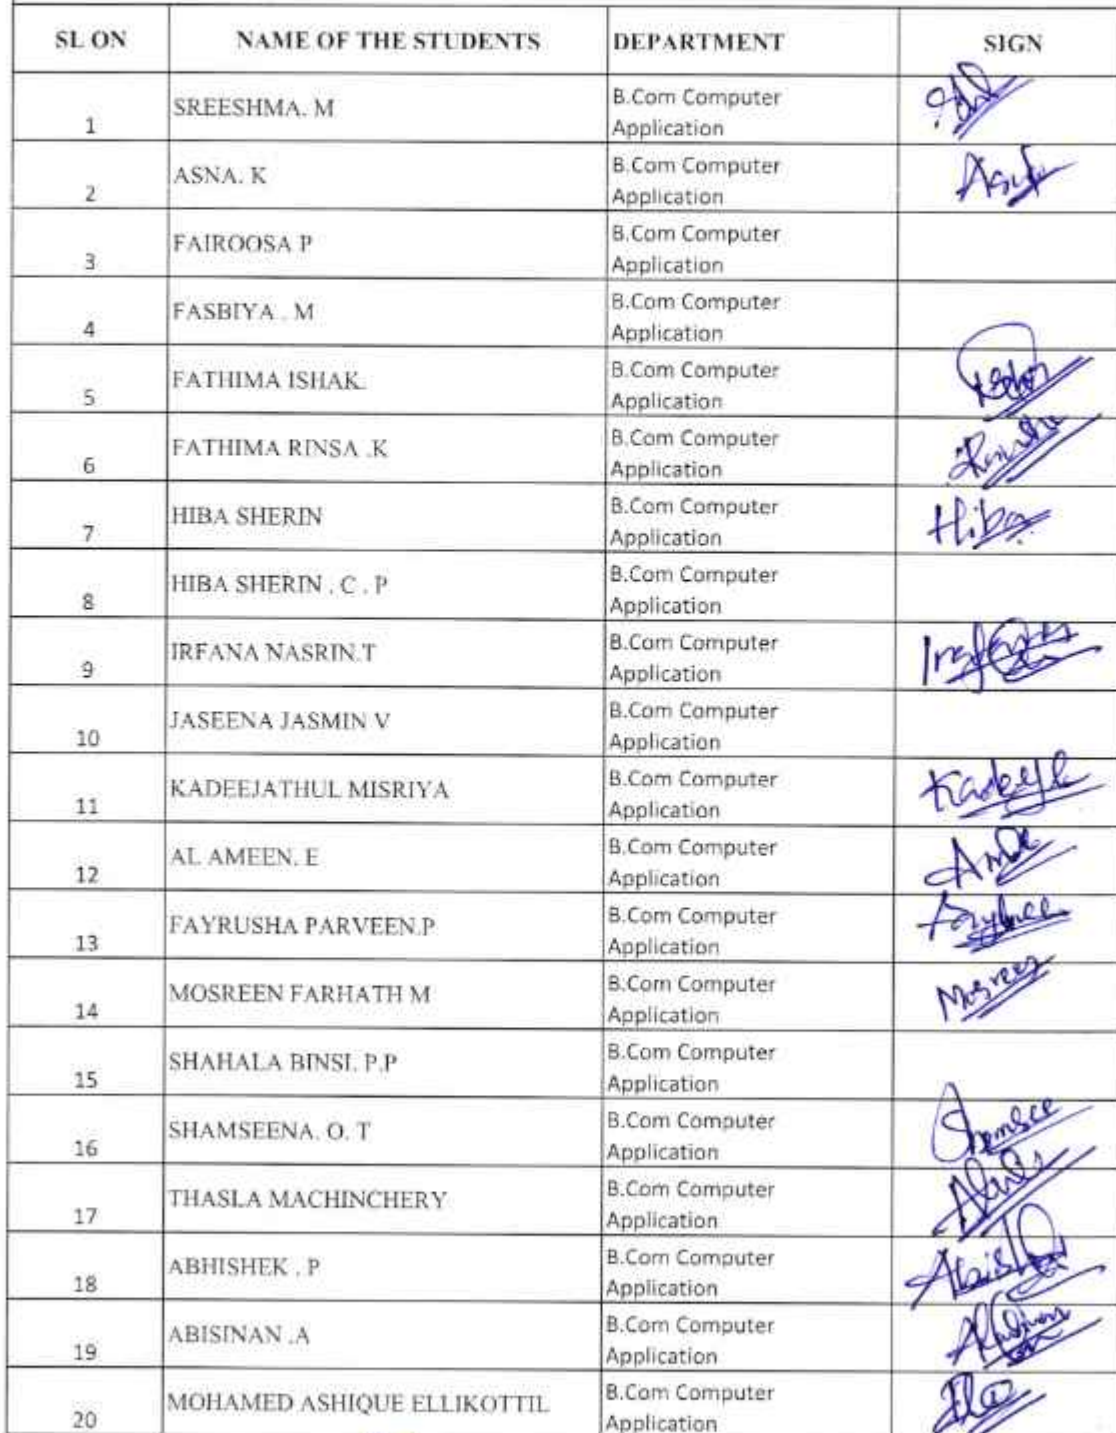 SL ON NAME OF THE STUDENTS DEPARTMENT SIGN
1 SREESHMA. M B.Com Computer
Application
2 ASNA. K B.Com Computer
Application
3 FAIROOSA P B.Com Computer
Application
4 FASBIYA . M B.Com Computer
Application
5 FATHIMA ISHAK. B.Com Computer
Application
6 FATHIMA RINSA .K B.Com Computer
Application
7 HIBA SHERIN B.Com Computer
Application Hiba
8 HIBA SHERIN . C . P B.Com Computer
Application
9 IRFANA NASRIN.T B.Com Computer
Application
10 JASEENA JASMIN V B.Com Computer
Application
11 KADEEJATHUL MISRIYA B.Com Computer
Application
12 AL AMEEN. E B.Com Computer
Application
13 FAYRUSHA PARVEEN.P B.Com Computer
Application
14 MOSREEN FARHATH M B.Com Computer
Application
15 SHAHALA BINSI. P.P B.Com Computer
Application
16 SHAMSEENA. O. T B.Com Computer
Application
17 THASLA MACHINCHERY B.Com Computer
Application
18 ABHISHEK . P B.Com Computer
Application
19 ABISINAN .A B.Com Computer
Application
20 MOHAMED ASHIQUE ELLIKOTTIL B.Com Computer
Application